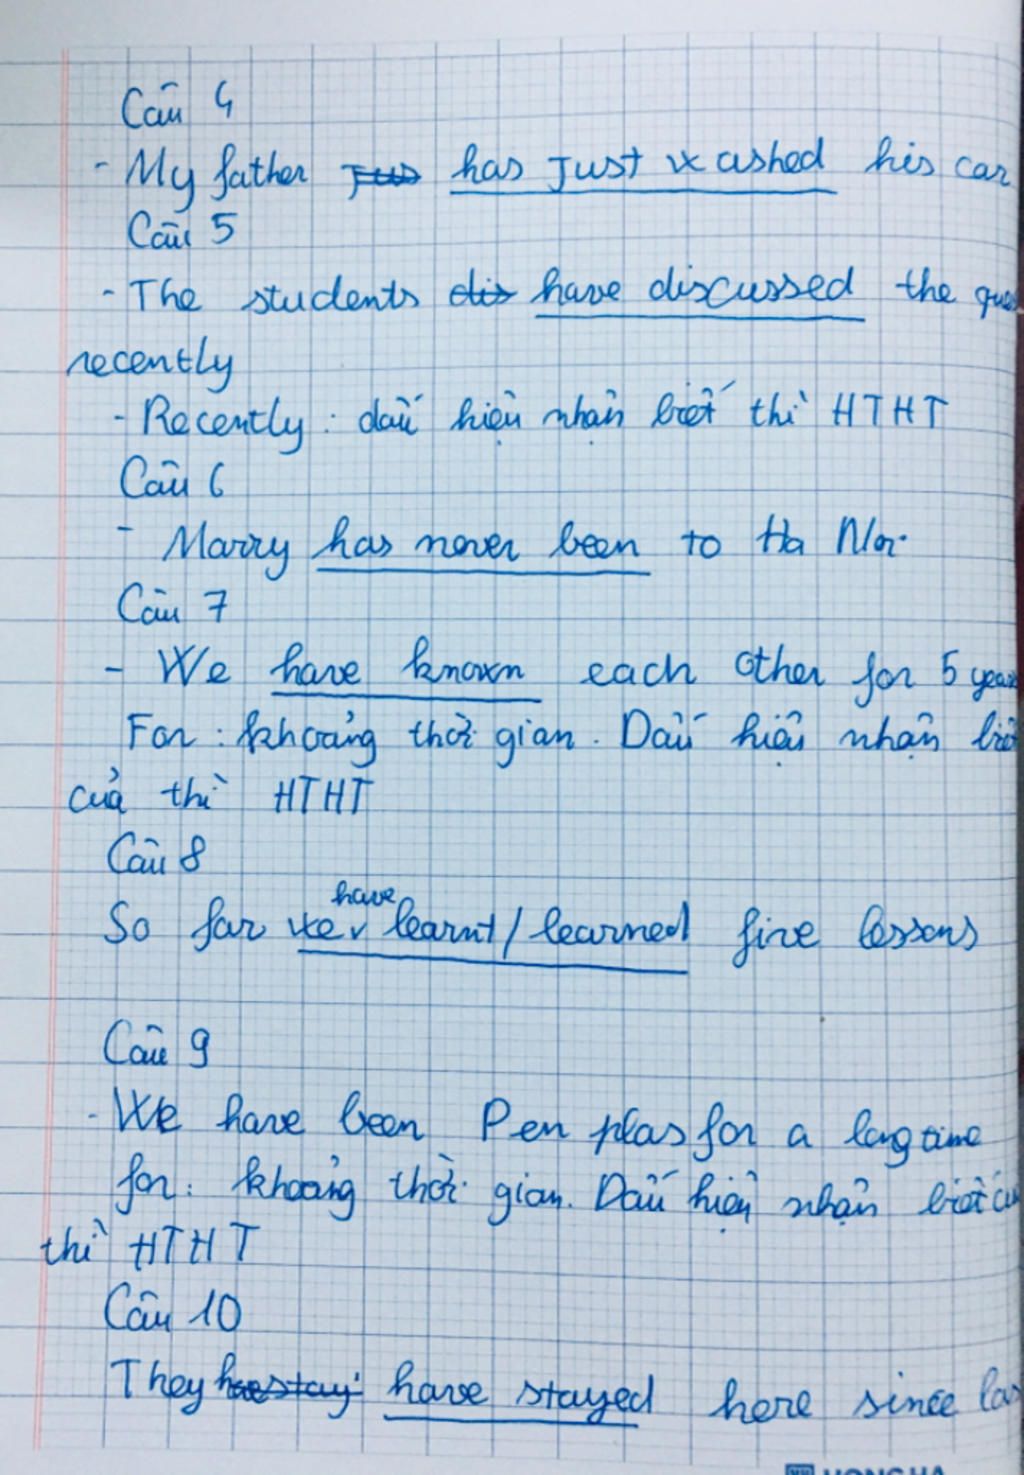 Câu 4
- My father has just washed his car
Câu 5
- The students have discussed the
recently
- Recently : dấu hiệu nhận biết thì HTHT
Câu 6
- Marry has never been to Ha Noi.
Câu 7
- We have known each other for 5 years
For : khoảng thời gian. Dấu hiệu nhận biết
của thì HTHT
Câu 8
So far we have learnt/learned five lessons
Câu 9
- We have been Pen plas for a long time
for : khoảng thời gian. Dấu hiệu nhận biết
thì HTHT
Câu 10
They have stayed here since
HONG HA